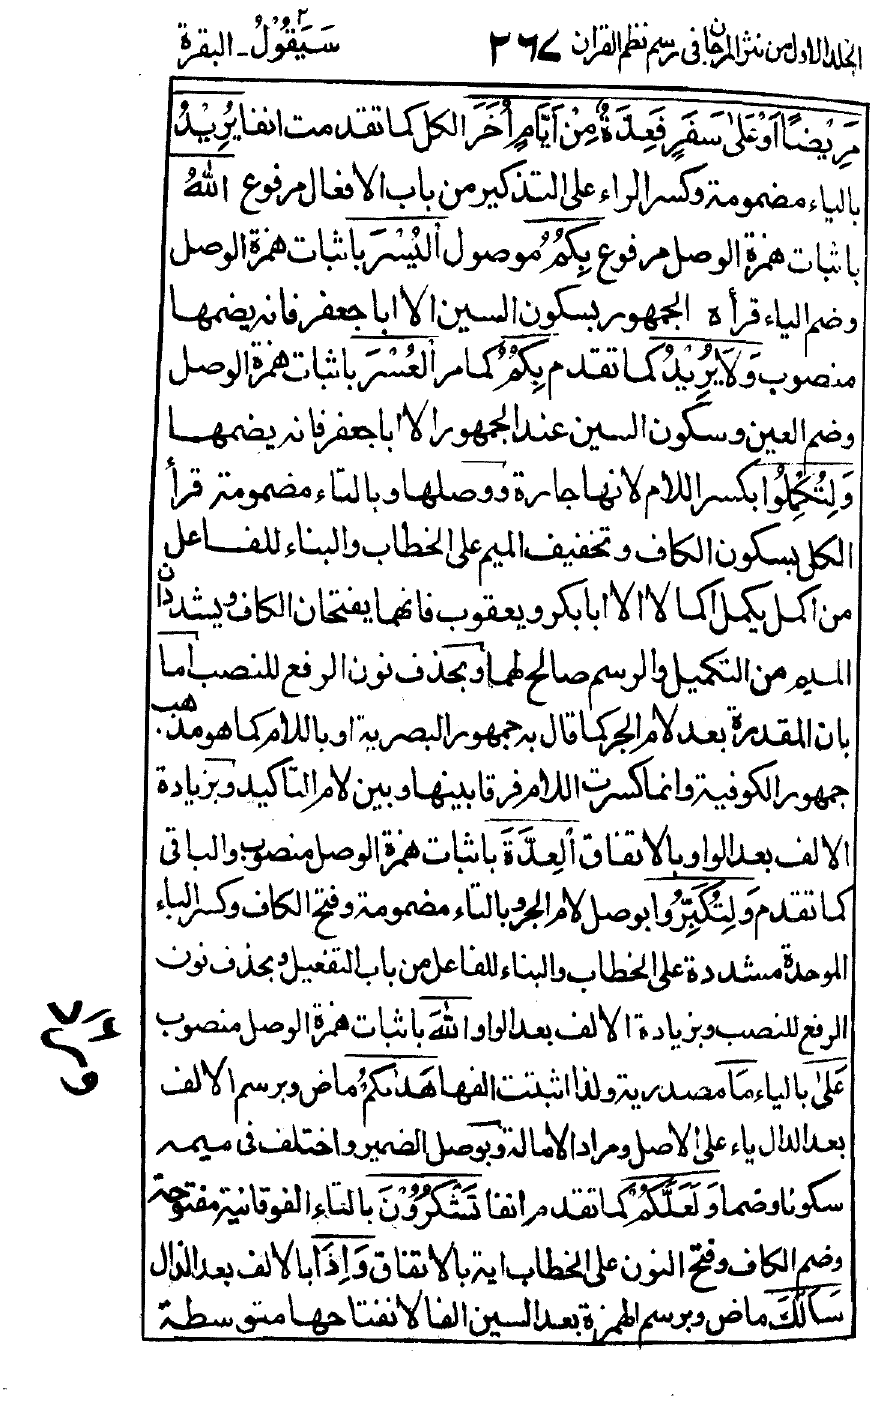 الجلد الاول من نثر المرجان فی رسم نظم القران ٣٦٧ سَيَقُوْلُ ٢ ـ البقرة
مَرِيْضًا اَوْعَلٰى سَفَرٍ فَعِدَّةٌ مِنْ اَيَّامٍ اُخَرَ الكل كما تقدمت انفا يُرِيْدُ
بالياء مضمومة وكسر الراء على التذكير من باب الافعال مرفوع اللّٰهُ
باثبات همزة الوصل مرفوع بِكُمُ موصول اَلْيُسْرَ باثبات همزة الوصل
وضم الياء قرأه الجمهور بسكون السين الا ابا جعفر فانه يضمها
منصوب وَلَا يُرِيْدُ كما تقدم بِكُمُ كما مر اَلْعُسْرَ باثبات همزة الوصل
وضم العين وسكون السين عند الجمهور الا ابا جعفر فانه يضمهـا
وَلِتُكْمِلُوا بكسر اللام لانها جارة ووصلها وبالتاء مضمومة قرأ
الكل بسكون الكاف وتخفيف الميم على الخطاب والبناء للفاعل
من اكمل يكمل اكمالا الا ابا بكر ويعقوب فانهما يفتحان الكاف ويشددان
الميم من التكميل والرسم صالح لهما وبحذف نون الرفع للنصب اما
بان المقدرة بعد لام الجر كما قال به جمهور البصرية او باللام كما هو مذهب
جمهور الكوفية وانما كسرت اللام فرقا بينها وبين لام التاكيد وبزيادة
الالف بعد الواو بالاتفاق اَلْعِدَّةَ باثبات همزة الوصل منصوب والباقى
كما تقدم وَلِتُكَبِّرُوا بوصل لام الجر وبالتاء مضمومة وفتح الكاف وكسر الباء
الموحدة مشددة على الخطاب والبناء للفاعل من باب التفعيل وبحذف نون
الرفع للنصب وبزيادة الالف بعد الواو اللّٰهَ باثبات همزة الوصل منصوب
عَلٰى بالياء مَا مصدرية ولذا اثبتت الفها هَدٰىكُمُ ماض وبرسم الالف
بعد الدال ياء على الاصل ومراد الامالة وبوصل الضمير واختلف فى ميمه
سكونا وضما وَلَعَلَّكُمُ كما تقدم انفا تَشْكُرُوْنَ بالتاء الفوقانية مفتوحة
وضم الكاف وفتح النون على الخطاب اية بالاتفاق وَاِذَا بالالف بعد الذال
سَاَلَكَ ماض وبرسم الهمزة بعد السين الفا لانفتاحها متوسطة